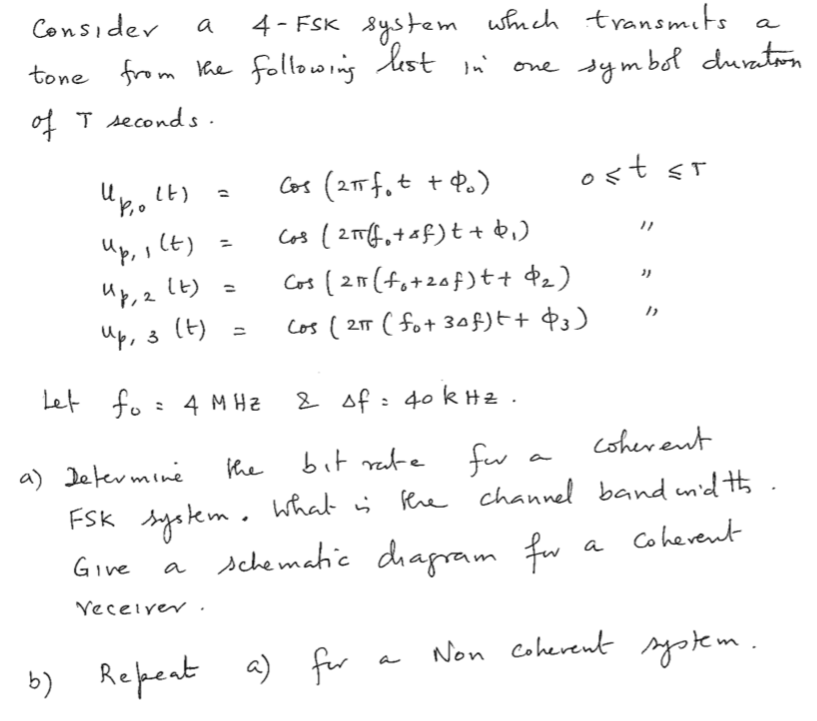 Consider a 4-FSK system which transmits a
tone from the following list in one symbol duration
of T seconds.
u_{p,0}(t) = Cos (2πf₀t + Φ₀) 0 ≤ t ≤ T
u_{p,1}(t) = Cos (2π(f₀+Δf)t + Φ₁) "
u_{p,2}(t) = Cos (2π(f₀+2Δf)t + Φ₂) "
u_{p,3}(t) = Cos (2π(f₀+3Δf)t + Φ₃) "
Let f₀ = 4 MHz & Δf = 40 kHz.
a) Determine the bit rate for a coherent
FSK system. What is the channel bandwidth.
Give a schematic diagram for a coherent
receiver.
b) Repeat a) for a Non coherent system.